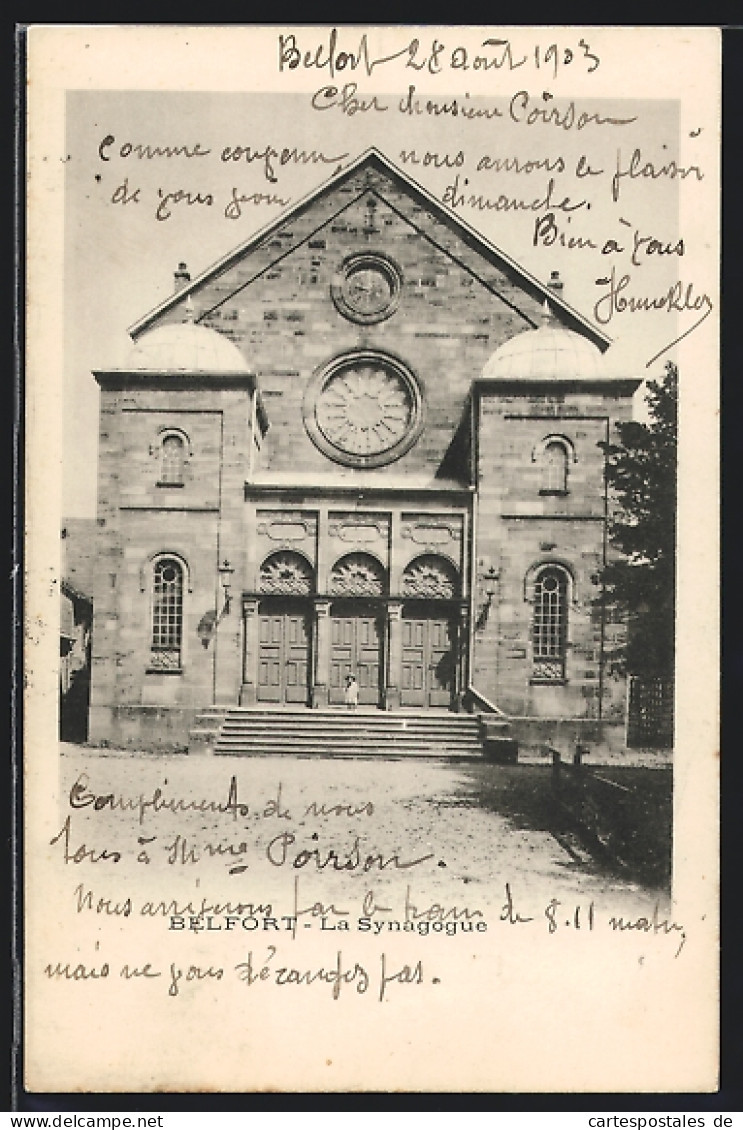 Belfort 28 Août 1903
Cher Monsieur Poirson
Comme convenu, nous aurons le plaisir
de vous voir dimanche.
Bien à vous
Compliments de nous
tous à Mme Poirson.
Nous arrivons par le train de 8.11 matin,
BELFORT - La Synagogue
mais ne vous dérangez pas.
cartespostales de